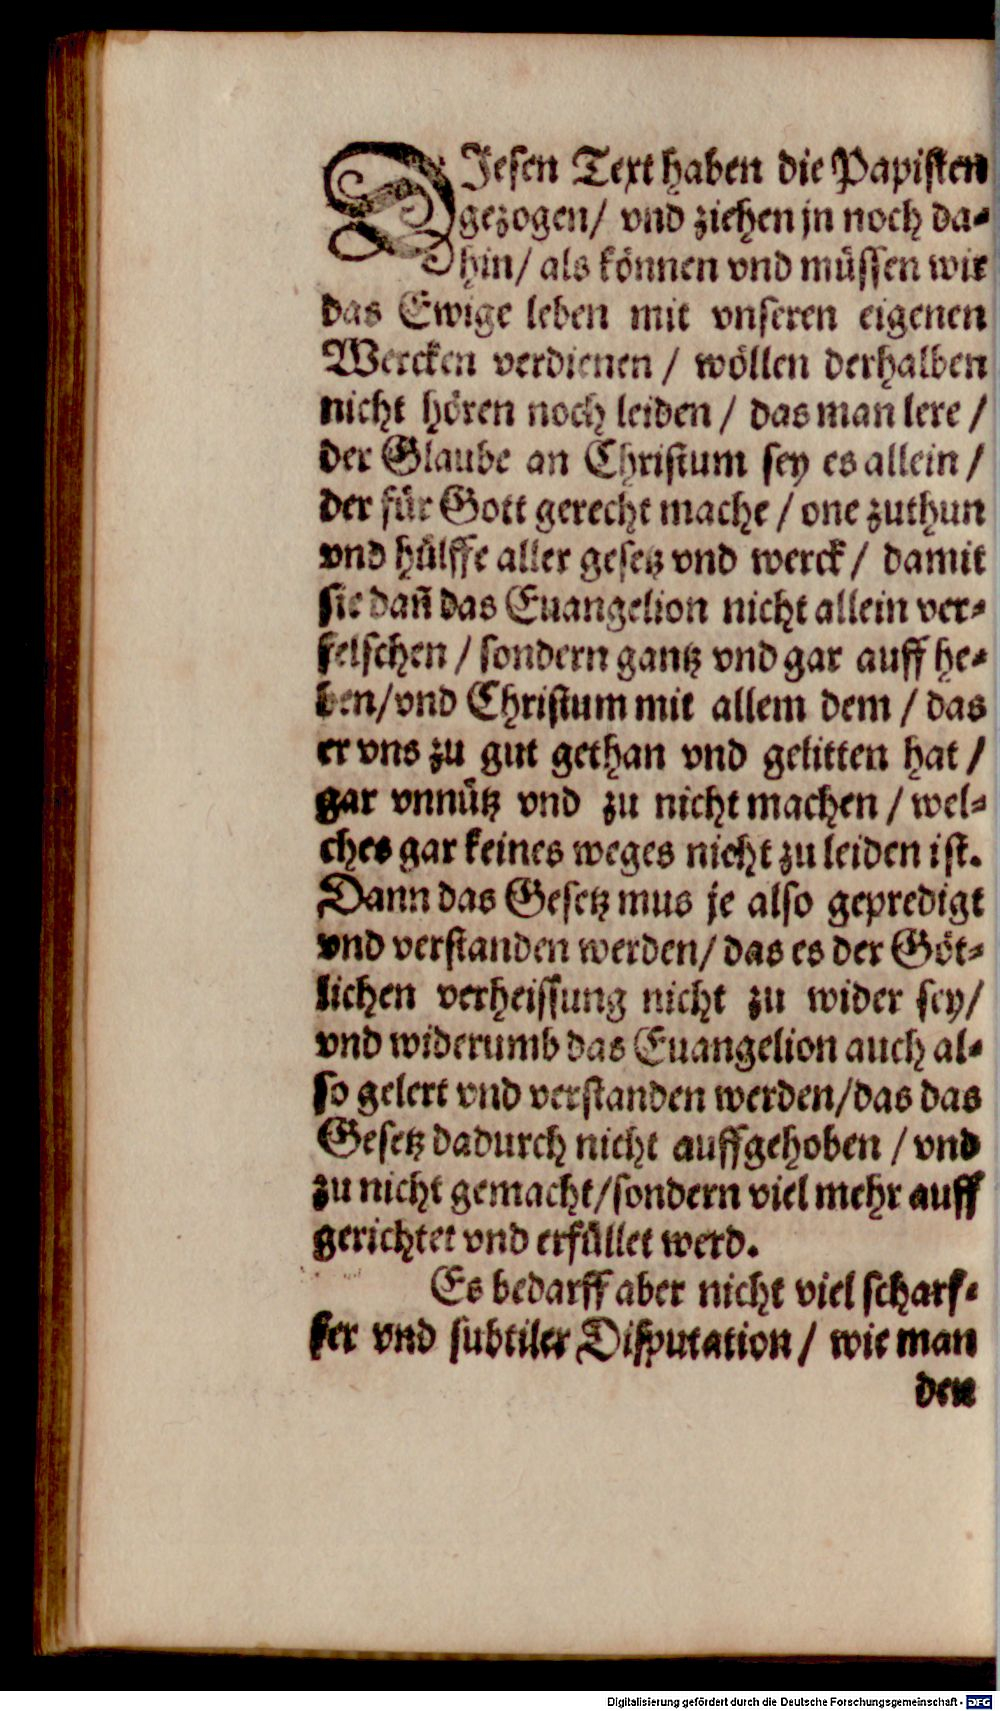 DJesen Text haben die Papisten
gezogen/ vnd ziehen jn noch da-
hin/ als können vnd müssen wir
das Ewige leben mit vnseren eigenen
Wercken verdienen / wöllen derhalben
nicht hören noch leiden / das man lere /
der Glaube an Christum sey es allein /
der für Gott gerecht mache / one zuthun
vnd hülffe aller gesetz vnd werck / damit
sie dañ das Euangelion nicht allein ver-
felschen / sondern gantz vnd gar auff he-
ben/vnd Christum mit allem dem / das
er vns zu gut gethan vnd gelitten hat /
gar vnnütz vnd zu nicht machen / wel-
ches gar keines weges nicht zu leiden ist.
Dann das Gesetz mus je also gepredigt
vnd verstanden werden/ das es der Göt-
lichen verheissung nicht zu wider sey/
vnd widerumb das Euangelion auch al-
so gelert vnd verstanden werden/das das
Gesetz dadurch nicht auffgehoben / vnd
zu nicht gemacht/sondern viel mehr auff
gerichtet vnd erfüllet werd.
Es bedarff aber nicht viel scharf-
fer vnd subtiler Disputation / wie man
den
Digitalisierung gefördert durch die Deutsche Forschungsgemeinschaft - DFG